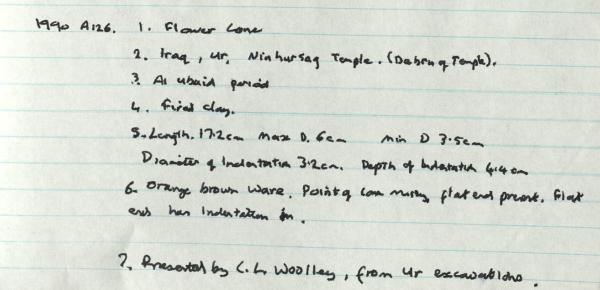 1990 A126. 1. Flower Cone
2. Iraq, Ur, Ninhursag Temple. (Debris of Temple).
3. Al Ubaid period
4. Fired clay.
5. Length. 17.2cm Max D. 6cm Min D 3.5cm
Diameter of Indentation 3.2cm. Depth of Indentation 4.4cm
6. Orange brown ware. Point of cone missing, flat end present. Flat
end has Indentation in.
7. Presented by C.L. Woolley, from Ur excavations.